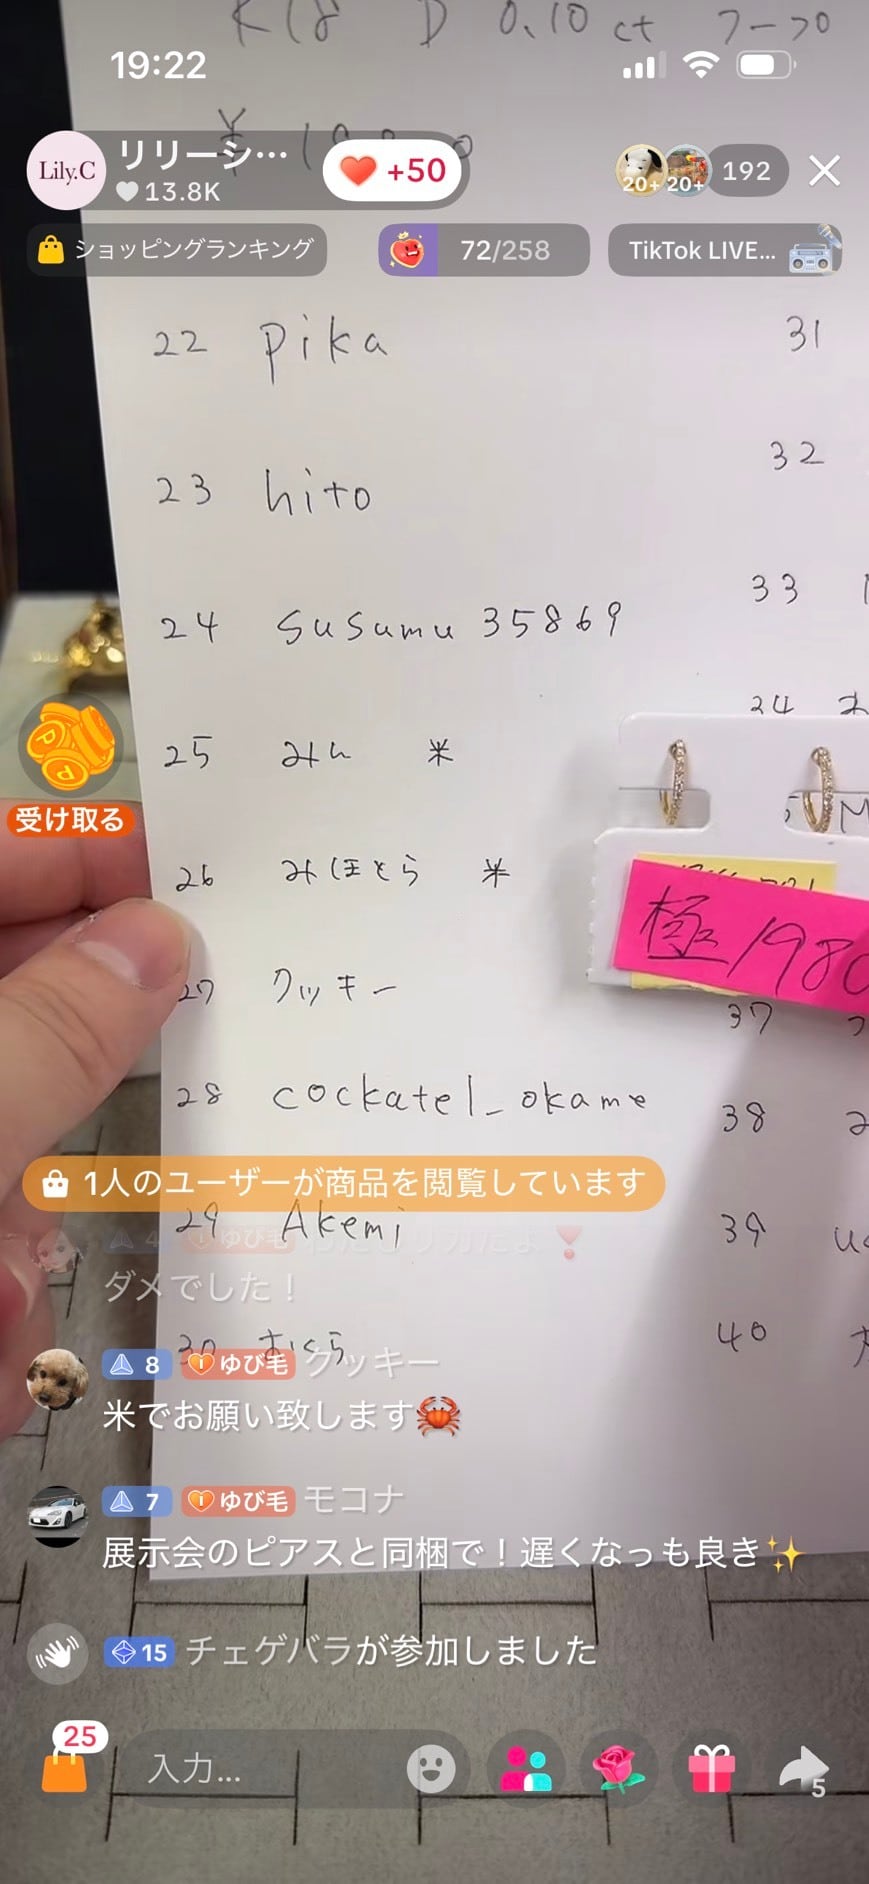 K18 D 0.10 ct フープ
19:22
¥
Lily.C
リリーシ…
13.8K
+50
20+
20+
192
ショッピングランキング
72/258
TikTok LIVE...
22 pika
31
23 hito
32
24 susumu 35869
33
25 みん 米
受け取る
26 みほとら 米
極 1980
27 クッキー
37
28 cockatel_okame
38
1人のユーザーが商品を閲覧しています
29 Akemi
39
ダメでした！
30
40
8 ゆび毛 クッキー
米でお願い致します🦀
7 ゆび毛 モコナ
展示会のピアスと同梱で！遅くなっも良き✨
15 チェゲバラが参加しました
25
入力...
5